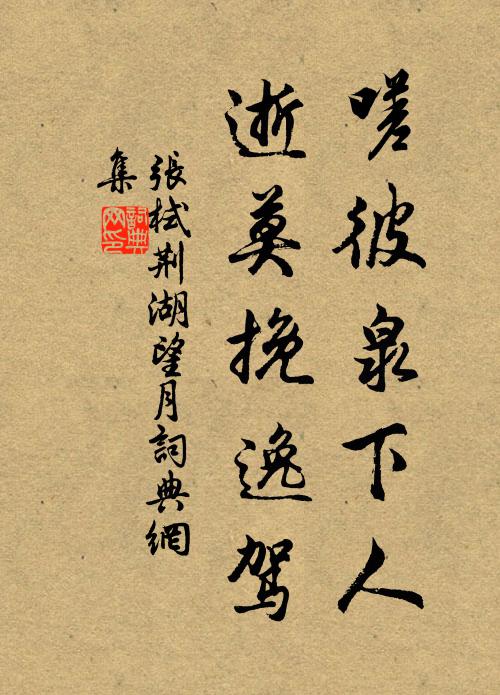 嗟彼泉下人
逝莫挽逸驾
張栻荆湖望月詞典網
集
詞典
网印